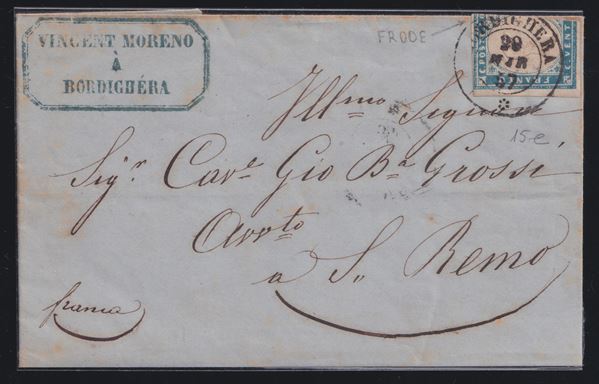 VINCENT MORENO
À
BORDIGHÉRA
FRODE
BORDIGHERA
29
MAR
57
C. POSTE
FRANCO
C. VENTI
15 e
Ill.mo Signore
Sig.r Cav.e Gio Ba Grossi
Avv.to
a S. Remo
franca